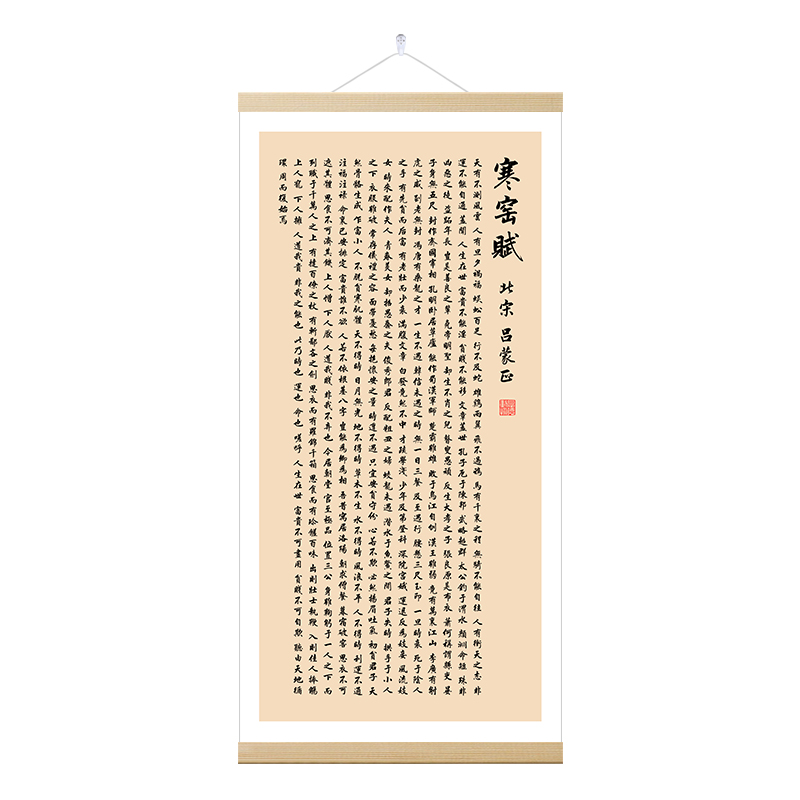 寒窑賦 北宋 吕蒙正
天有不測風雲 人有旦夕禍福 蜈蚣百足 行不及蛇 雄鷄兩翼 飛不過鴉 馬有千里之程 無騎不能自往 人有衝天之志 非
運不能自通 蓋聞 人生在世 富貴不能淫 貧賤不能移 文章蓋世 孔子厄于陳邦 武略超群 太公釣于渭水 顏淵命短 殊非
凶惡之徒 盗跖年長 豈是善良之輩 堯帝明聖 却生不肖之兒 瞽叟愚頑 反生大孝之子 張良原是布衣 蕭何稱謂縣吏 晏
子身無五尺 封作齊國宰相 孔明卧居草廬 能作蜀漢軍師 楚霸雖雄 敗于烏江自刎 漢王雖弱 竟有萬里江山 李廣有射
虎之威 到老無封 馮唐有乘龍之才 一生不遇 韓信未遇之時 無一日三餐 及至遇行 腰懸三尺玉印 一旦時衰 死于陰人
之手 有先貧而后富 有老壯而少衰 滿腹文章 白發竟然不中 才疏學淺 少年及第登科 深院宫娥 運退反爲妓妾 風流妓
女 時來配作夫人 青春美女 却招愚蠢之夫 俊秀郎君 反配粗丑之婦 蛟龍未遇 潜水于魚鱉之間 君子失時 拱手于小人
之下 衣服雖破 常存儀禮之容 面帶憂愁 每抱懷安之量 時遭不遇 只宜安貧守份 心若不欺 必然揚眉吐氣 初貧君子 天
然骨骼生成 乍富小人 不脱貧寒肌體 天不得時 日月無光 地不得時 草木不生 水不得時 風浪不平 人不得時 利運不通
注福注禄 命裏已安排定 富貴誰不欲 人若不依根基八字 豈能爲卿爲相 吾昔寓居洛陽 朝求僧餐 暮宿破窖 思衣不可
遮其體 思食不可濟其饑 上人憎 下人厭 人道我賤 非我不弃也 今居朝堂 官至極品 位置三公 身雖鞠躬于一人之下 而
列職于千萬人之上 有撻百僚之杖 有斬鄙吝之劍 思衣而有羅錦千箱 思食而有珍饈百味 出則壯士執鞭 入則佳人捧觴
上人寵 下人擁 人道我貴 非我之能也 此乃時也 運也 命也 嗟呼 人生在世 富貴不可盡用 貧賤不可自欺 聽由天地循
環 周而復始焉